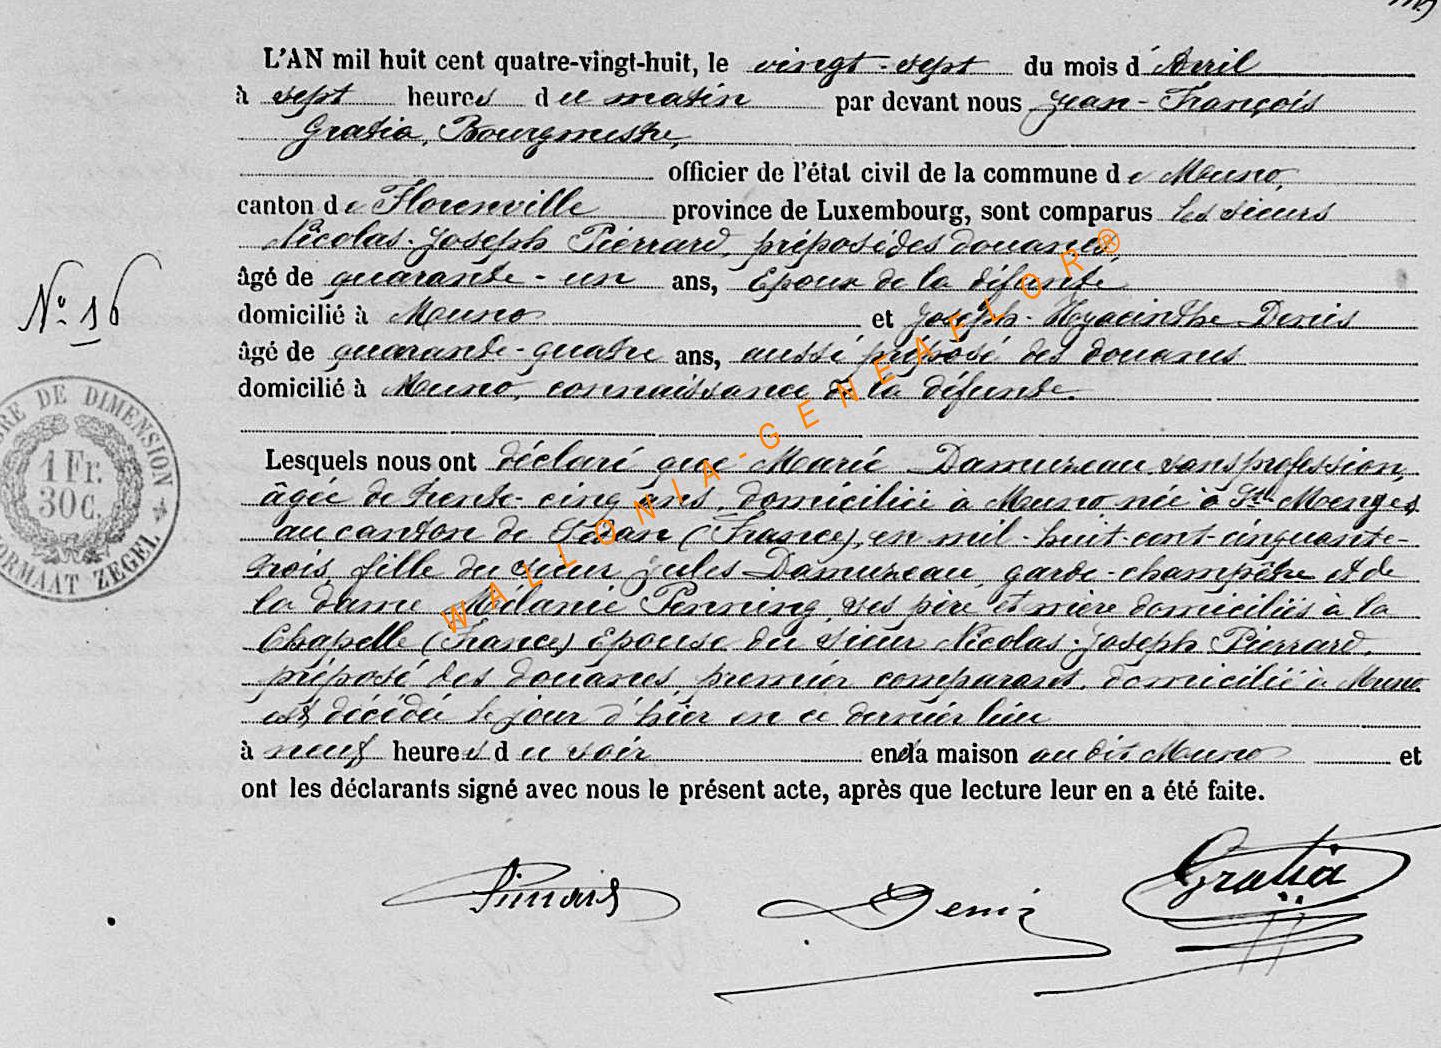 L'AN mil huit cent quatre-vingt-huit, le vingt-sept du mois d'Avril
à sept heures du matin par devant nous Jean-François
Gratia, Bourgmestre,
officier de l'état civil de la commune de Muno,
canton de Florenville province de Luxembourg, sont comparus les sieurs
Nicolas-Joseph Piérrard, préposé des douanes,
âgé de quarante-un ans, Epoux de la défunte
domicilié à Muno et Joseph-Hyacinthe Denis
âgé de quarante-quatre ans, aussi préposé des douanes
domicilié à Muno, connaissance de la défunte.
Lesquels nous ont déclaré que Marie Damuzeau, sans profession,
âgée de trente-cinq ans, domiciliée à Muno née à St Menges,
au canton de Sédan (France), en mil-huit-cent-cinquante-
trois, fille du sieur Jules Damuzeau, garde-champêtre et de
la dame Mélanie Penning, ses père et mère domiciliés à la
Chapelle (France) Epouse du sieur Nicolas-Joseph Piérrard,
préposé des douanes, premier comparant, domicilié à Muno
est décédée le jour d'hier en ce dernier lieu
à neuf heures du soir en la maison au dit Muno et
ont les déclarants signé avec nous le présent acte, après que lecture leur en a été faite.
No. 16
TIMBRE DE DIMENSION
1 Fr.
30 C.
FORMAAT ZEGEL
WALLONIA-GENEAFLOR®
Denis
Gratia